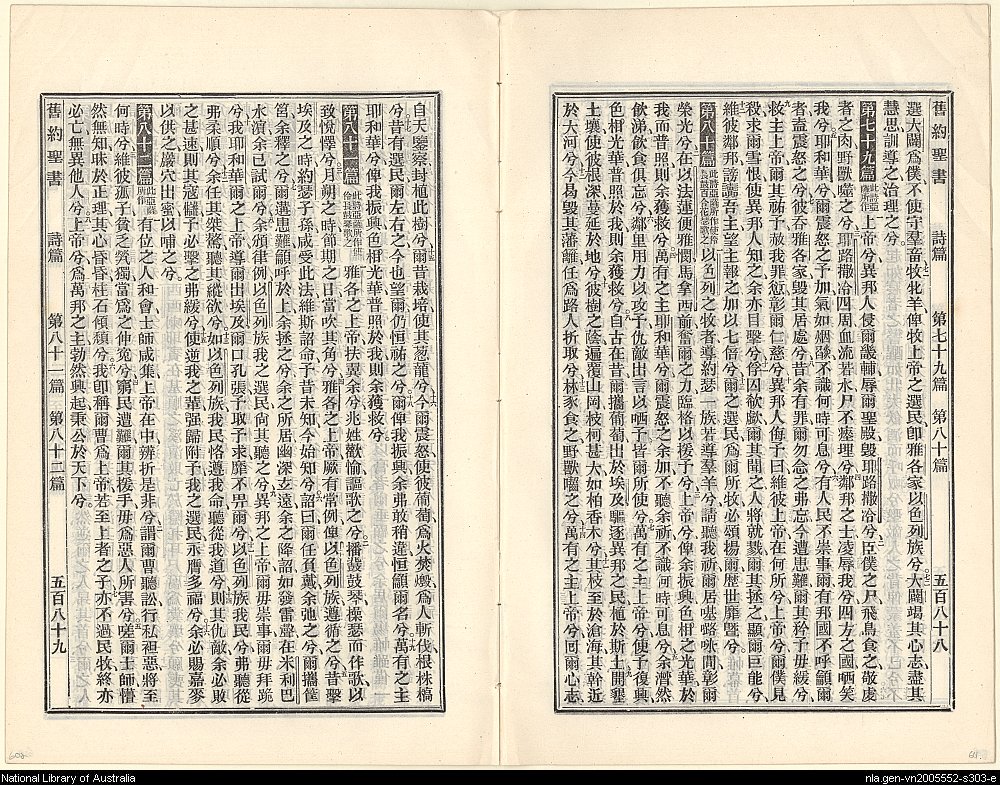 舊約聖書 詩篇 第七十九篇 第八十篇 五百八十八
選大闢爲僕不使守羣畜牧牝羊俾牧上帝之選民卽雅各家以色列族兮大闢竭其心志盡其
慧思訓導之治理之兮
第七十九篇 此詩亞薩所作 上帝兮異邦人侵爾畿輔辱爾聖殿毀耶路撒冷兮臣僕之尸飛鳥食之敬虔
者之肉野獸噬之兮耶路撒冷四周血流若水尸不瘞埋兮鄰邦之士凌辱我兮四方之國哂笑
我兮耶和華兮爾震怒之予加氣如烟燄不識何時可息兮有人民不崇事爾有邦國不呼籲爾
者盍震怒之兮彼吞雅各家毀其居處兮昔余有罪爾勿念之弗忘今遭患難爾其矜予毋緩兮
救主上帝爾其祐予赦我罪愆彰爾仁慈兮異邦人侮予曰維彼上帝在何所兮爾僕見
殺求爾雪恨使異邦人知之余亦目擊兮俘囚欷歔爾其聞之人將就戮爾其拯之顯爾巨能兮
維彼鄰邦謗讟吾主望主報之加以七倍兮爾之選民爲爾所牧必頌揚爾歷世靡曁兮
第八十篇 以色列之牧者導約瑟一族若導羣羊兮請聽我祈爾居間彰爾
榮光兮在以法蓮便雅憫馬拿西前奮爾之力臨格以援予兮上帝兮俾余振興色相之光華於
我而普照則余獲救兮萬有之主耶和華兮爾震怒之余加不聽余祈不識何時可息兮余濟然
飲涕泣飲食俱忘兮鄰里用力以攻予仇敵出言以哂予皆爾所使兮萬有之主上帝兮使予復興
色相光華普照於我則余獲救兮自古在昔爾攜葡萄出於埃及驅逐異邦之民植於斯土開墾
土壤使彼根深蔓延於地兮彼樹之蔭遍覆山岡枝柯甚大如柏香木兮其枝至於滄海其幹近
於大河兮今曷毀其藩籬任爲路人折取兮林豕食之野獸囓之兮萬有之主上帝兮回爾心志
自天鑒察封植此樹兮爾昔栽培使其葱蘢兮今爾震怒使彼葡萄爲火焚燬爲人斬伐根株槁
兮昔有選民爾左右之今也望爾仍恒祐之兮爾俾我振興余弗敢稍違恒籲爾名兮萬有之主
耶和華兮俾我振興色相光華普照於我則余獲救兮
第八十一篇 雅各之上帝扶翼余兮兆姓歡愉謳歌之兮播鼗鼓琴操瑟而作歌以
致悅懌兮月朔之時節期之日當吹其角兮雅各之上帝厥有常例俾以色列族遵循之兮昔擊
埃及之時約瑟子孫咸受此法維斯詔命予昔未知今始知兮詔曰爾任負戴余弛之兮爾攜筐
筥余釋之兮爾遘患難籲呼於上余拯之兮余之所居幽深玄遠余之降詔如發雷聲在米利巴
水濱余已試爾兮余頒律例以色列族我之選民尙其聽之兮異邦之上帝爾毋崇事爾毋拜跪
兮我耶和華爾之上帝導爾出埃及爾口孔張予取予求靡不畀爾兮以色列族我民兮弗聽從
弗柔順兮余任其桀驁聽其縱欲兮如以色列族我民恪遵我命聽從我道兮則其仇敵余必敗
之甚速則其寇讎予必擊之弗緩兮使逆我之華強歸附于我之選民永膺多福兮余必賜嘉麥
以供之巖穴出蜜以哺之兮
第八十二篇 此亞薩所作 有位之人和會士師咸集上帝在中辨折是非兮謂爾曹聽訟行私袒惡將至
何時兮維彼孤子貧乏煢獨當爲之伸寃兮窮民遭難爾其援手毋爲惡人所害兮嗟爾士師懵
然無知昧於正理其心昏昏柱石傾頹兮我卽稱爾曹爲上帝若至上者之子亦不過民牧終亦
必亡無異他人兮上帝兮爲萬邦之主勃然興起秉公於天下兮
舊約聖書 詩篇 第八十一篇 第八十二篇 五百八十九
National Library of Australia
nla.gen-vn2005552-s303-e